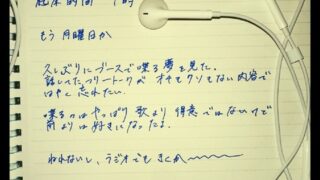 起床時間 7時
もう月曜日か
久しぶりにブースで喋る夢を見た。
話してたフリートークがオチもクソもない内容で
はやく忘れたい。
喋るのはやっぱり歌より得意ではないけど
前よりは好きになったよ。
ねれないし、ラジオでもきくか〜